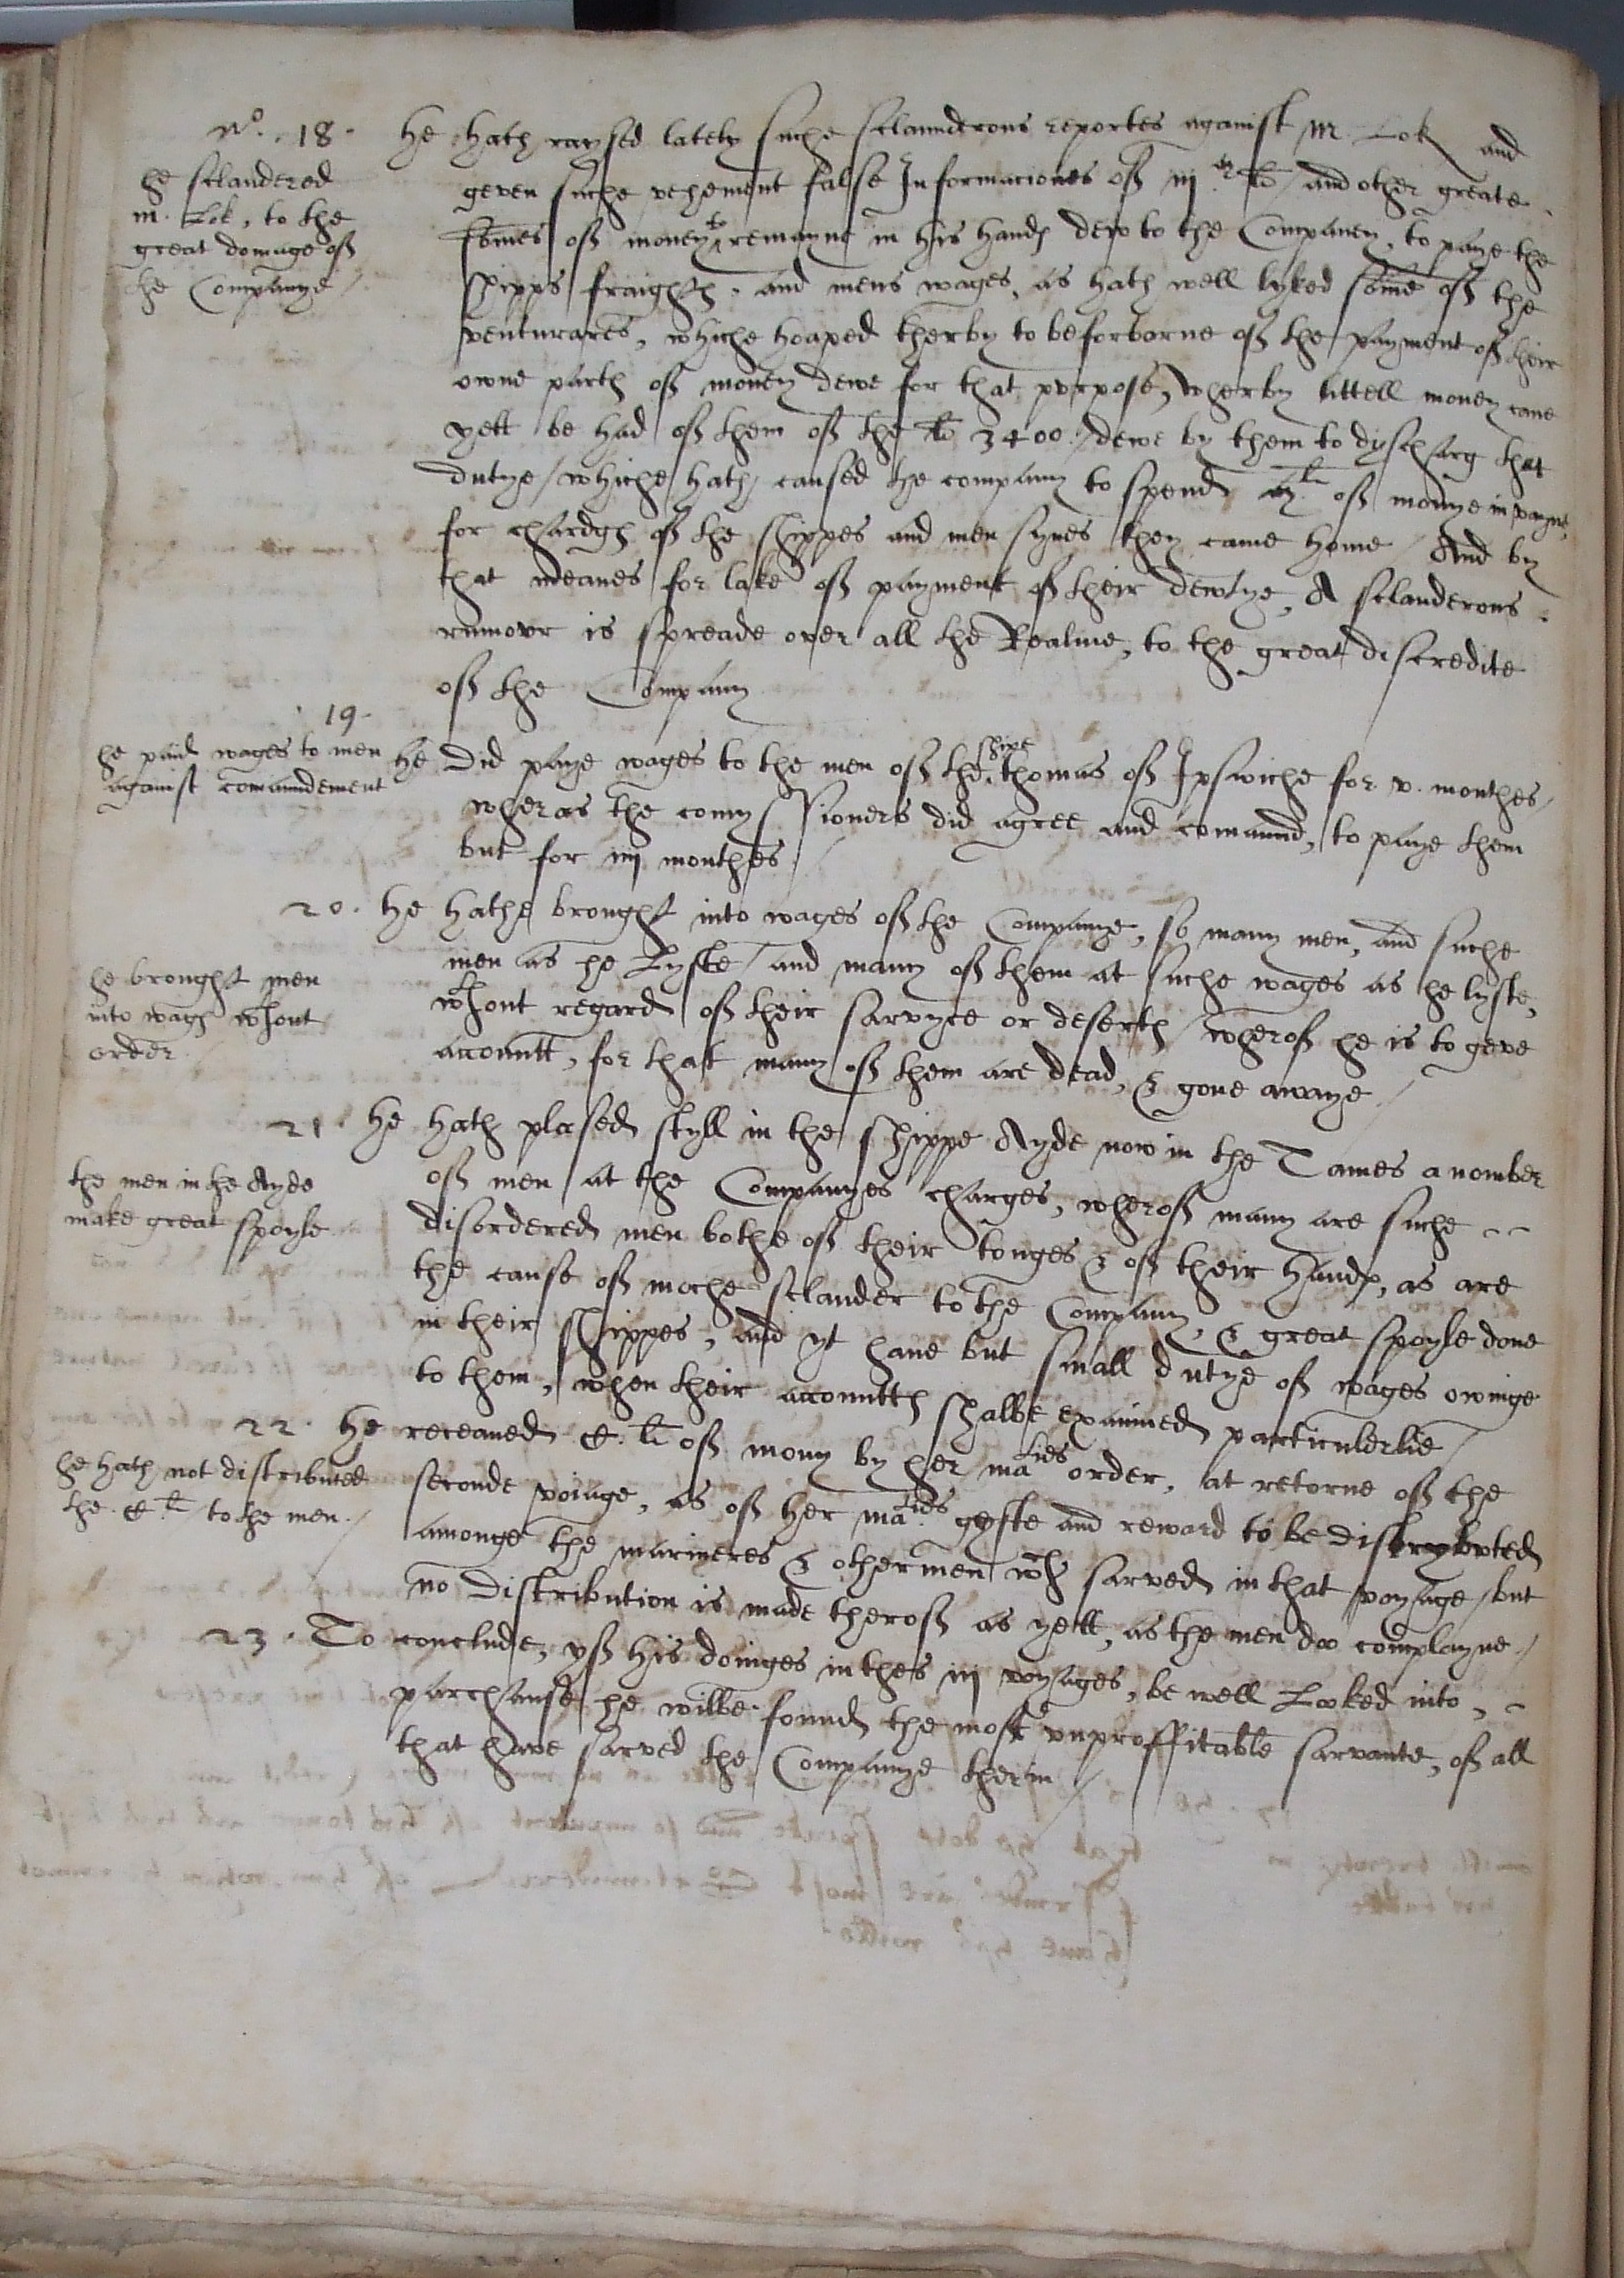 No. 18.
he sclandered
m. Lok, to the
great domage off
the Companye
He hath raysed lately suche sclaunderous reportes against Mr. Lok and
geven suche vehement false Informaciones off iij and other greate
somes off money to remayne in his hands dew to the Companey, to paye the
shipps fraights. and mens wages, as hath well lyked some off the
venturares, whiche hoaped therby to be forborne off the payment off their
owne parts off money dewe for that purpose, wherby littell money cane
yett be had off them off the li 3400. dewe by them to dyscharg that
dutye / whiche hath caused the company to spend li off monye in vayne,
for chardgs off the shippes and men synes they came home / And by
that meanes for lake off payment off their dewtye, A sclanderous
rumour is spreade over all the Realme, to the great discredite
off the Company
19.
he paid wages to men
against comaundement
He did paye wages to the men off the shipe thomas off Ipswiche for v. monthes,
wheras the comyssioners did agree and comaund, to paye them
but for iiij monthes /
20. He hathe brought into wages off the Companye, so many men, and suche
he brought men
into wags wthout
order
men as he Lyste / and many off them at suche wages as he lyste,
wthout regard off their sarvyce or deserts / wheroff he is to geve
accountt, for that many off them are dead, & gone awaye /
21. He hath plased styll in the shippe Ayde now in the Tames a nomber
the men in the Ayde
make great spoyle
off men at the Companyes charges, wheroff many are suche
disordered men bothe off their tonges & off their hands, as are
the cause off moche sclander to the Company, & great spoyle done
in their shippes, and yt have but small dutye off wages owinge
to them, when their accountts shalbe examined particulerlie /
22. He receaved C. li off mony by her maties order, at retorne off the
he hath not distributed
the C li to the men /
seconde voiage, as off her maties gyfte and reward to be distrybuted
amonge the marineres & other men wch sarved in that voyage / but
no distribution is made theroff as yett, as the men doo complayne /
23. To conclude, yff his doinges in thes iij voyages, be well Looked into,
parchanse he wilbe found the moste unproffitable sarvante, off all
that have sarved the Companye therin /